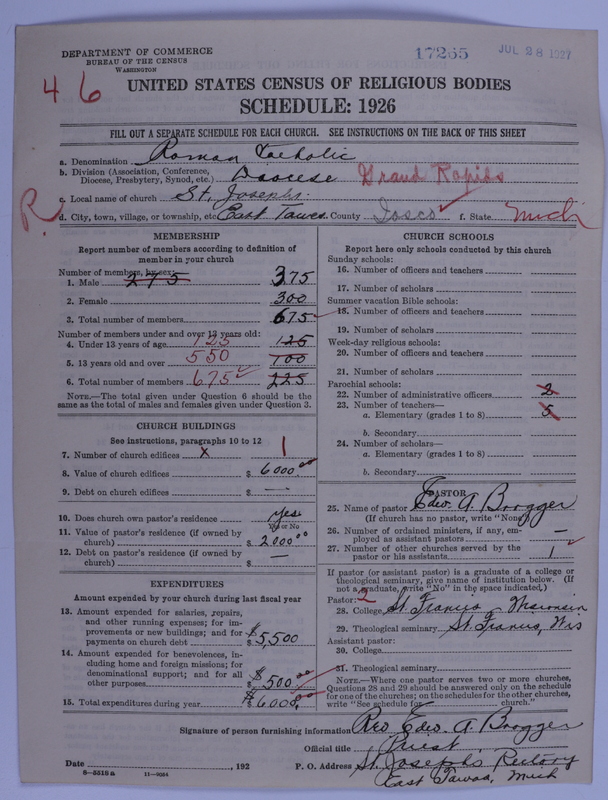 DEPARTMENT OF COMMERCE
BUREAU OF THE CENSUS
WASHINGTON
17265
JUL 28 1927
46
UNITED STATES CENSUS OF RELIGIOUS BODIES
SCHEDULE: 1926
FILL OUT A SEPARATE SCHEDULE FOR EACH CHURCH. SEE INSTRUCTIONS ON THE BACK OF THIS SHEET
a. Denomination Roman Catholic
b. Division (Association, Conference, Diocese, Presbytery, Synod, etc.) Diocese Grand Rapids
c. Local name of church St. Josephs
R. d. City, town, village, or township, etc. East Tawas County Iosco f. State Mich
MEMBERSHIP
Report number of members according to definition of
member in your church
Number of members, by sex:
1. Male 275 375
2. Female 300
3. Total number of members 675
Number of members under and over 13 years old:
4. Under 13 years of age 125 125
5. 13 years old and over 550 100
6. Total number of members 675 225
NOTE.—The total given under Question 6 should be the
same as the total of males and females given under Question 3.
CHURCH BUILDINGS
See instructions, paragraphs 10 to 12
7. Number of church edifices x 1
8. Value of church edifices $ 6000.00
9. Debt on church edifices $ —
10. Does church own pastor's residence yes
Yes or No
11. Value of pastor's residence (if owned by
church) $ 2000.00
12. Debt on pastor's residence (if owned by
church) $ —
EXPENDITURES
Amount expended by your church during last fiscal year
13. Amount expended for salaries, repairs,
and other running expenses; for im-
provements or new buildings; and for
payments on church debt $ 5,500
14. Amount expended for benevolences, in-
cluding home and foreign missions; for
denominational support; and for all
other purposes $ 500.00
15. Total expenditures during year $ 6000.00
CHURCH SCHOOLS
Report here only schools conducted by this church
Sunday schools:
16. Number of officers and teachers
17. Number of scholars
Summer vacation Bible schools:
18. Number of officers and teachers
19. Number of scholars
Week-day religious schools:
20. Number of officers and teachers
21. Number of scholars
Parochial schools:
22. Number of administrative officers 2
23. Number of teachers—
a. Elementary (grades 1 to 8) 5
b. Secondary
24. Number of scholars—
a. Elementary (grades 1 to 8)
b. Secondary
PASTOR
25. Name of pastor Edw. A. Brogger
(If church has no pastor, write "None")
26. Number of ordained ministers, if any, em-
ployed as assistant pastors —
27. Number of other churches served by the
pastor or his assistants 1
If pastor (or assistant pastor) is a graduate of a college or
theological seminary, give name of institution below. (If
not a graduate, write "No" in the space indicated.)
Pastor: 2
28. College St. Francis Wisconsin
29. Theological seminary St. Francis, Wis
Assistant pastor:
30. College
31. Theological seminary
NOTE.—Where one pastor serves two or more churches,
Questions 28 and 29 should be answered only on the schedule
for one of the churches; on the schedules for the other churches,
write "See schedule for church."
Signature of person furnishing information Rev Edw. A. Brogger
Official title Priest
Date , 192 P. O. Address St. Josephs Rectory
8—5518 a 11—9034 East Tawas, Mich